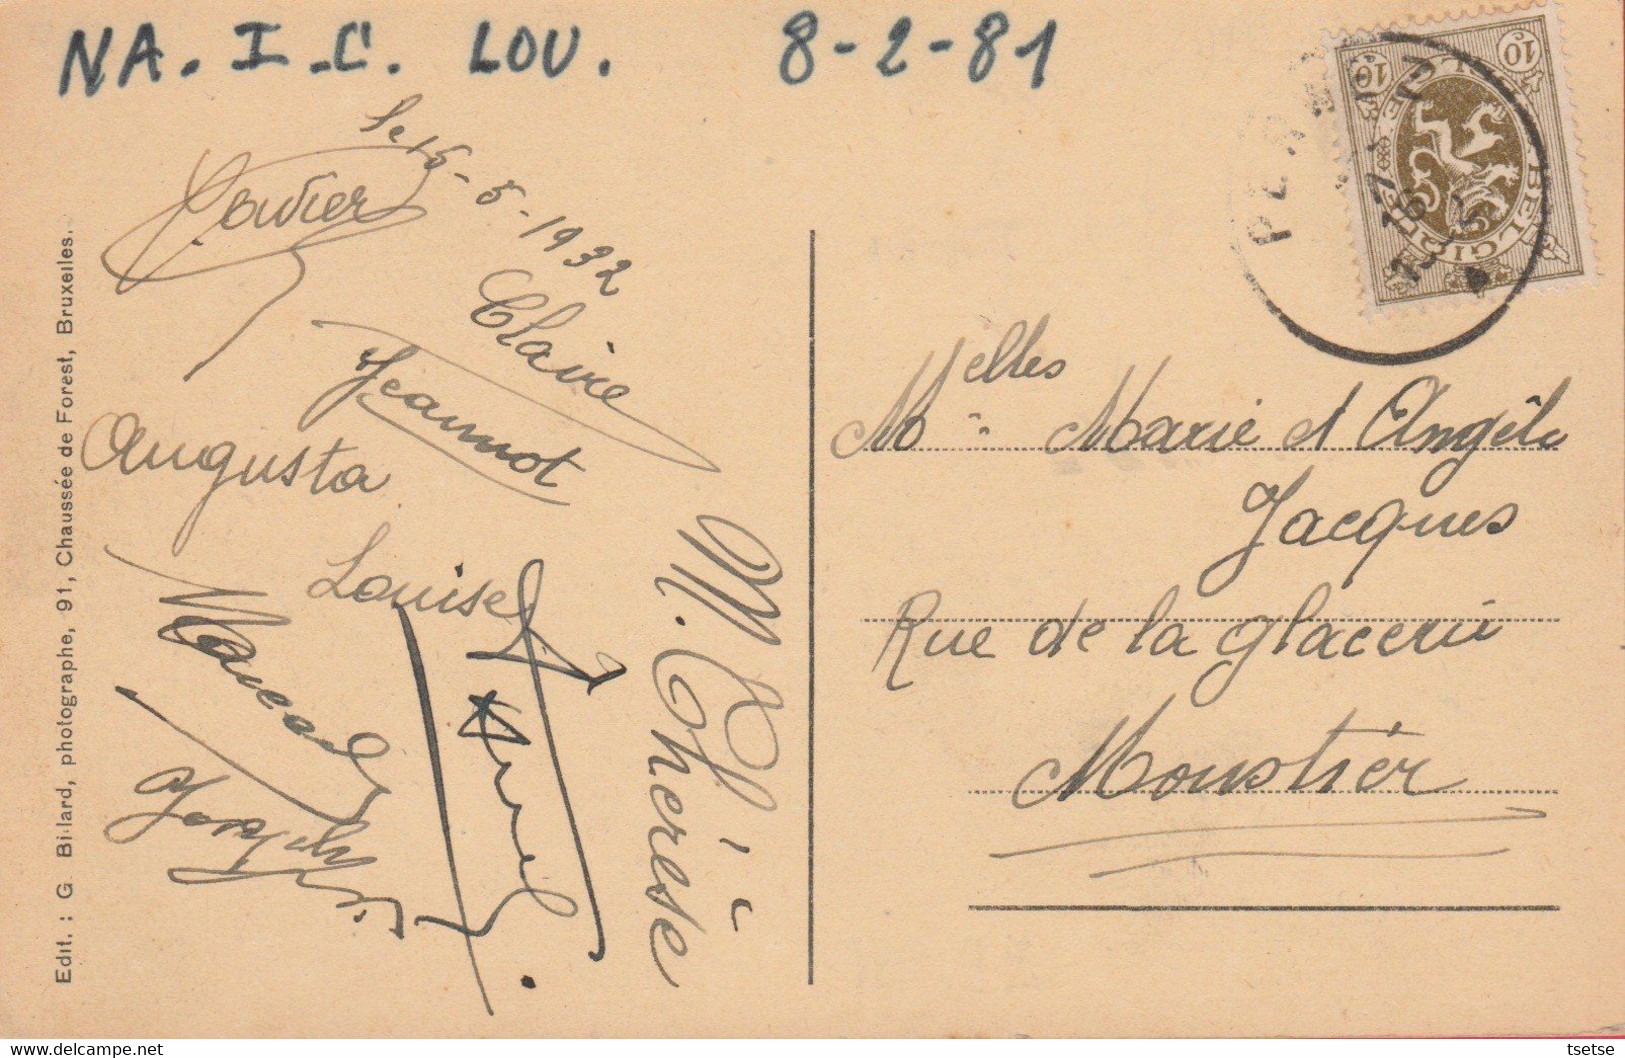 NA. I.C. LOU. 8-2-81
le 15-5-1932
Claire
Jeannot
Augusta
Louise
M. Thérèse
Joseph
Edit. : G Billard, photographe, 91, Chaussée de Forest, Bruxelles.
10c 10c
BELGIQUE BELGIË
Melles
Mlle Marie et Angèle
Jacques
Rue de la glacerie
Moustier
tsetse